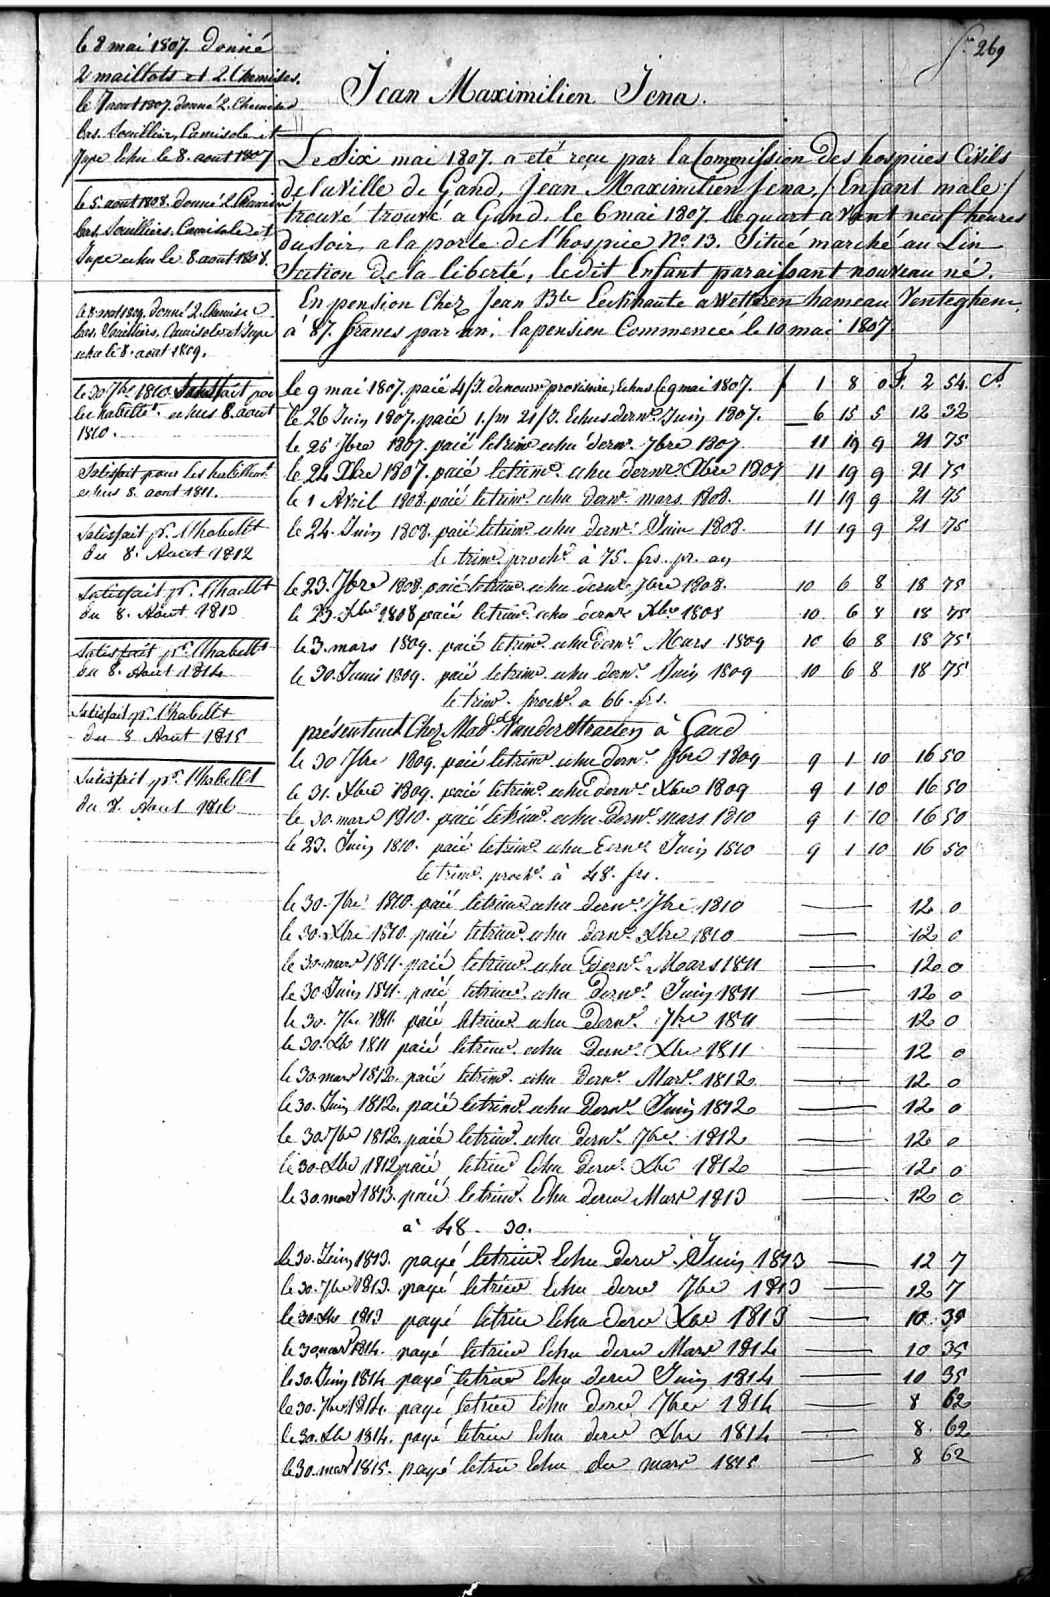 fo 269
le 8 mai 1807. donné
2 maillots et 2 Chemises.
le 7 aout 1807. donné 2. Chemises
bas. Souilliers, Camisole et
Jupe echu le 8. aout 1807
le 5. aout 1808. donné 2 Chemises
bas. Souilliers. Camisole et
Jupe echu le 8 aout 1808.
le 8 aout 1809. donné 2. Chemises
bas. Souilliers, Camisole et Jupe
echu le 8. aout 1809.
le 30 7bre 1810. Satisfait pour
les habillts. echus 8. aout
1810.
Satisfait pour les habillemts
echus 8. aout 1811.
Satisfait pr. l'habellt
du 8. Aout 1812
Satisfait pr. l'habellt
du 8. Aout 1813
Satisfait pr. l'habellt
du 8. Aout 1814
Satisfait pr. l'habellt
du 8 Aout 1815
Satisfait pr. l'habellt
du 8. Aout 1816
Jean Maximilien Jena.
Le Six mai 1807. a eté reçu par la Commission des hospices Civils
de la ville de Gand, Jean Maximilien Jena, /: Enfant male :/
trouvé trouvé a Gand, le 6 mai 1807. le quart avant neuf heures
du soir, a la porte de l'hospice No. 13. Situé marché au Lin
Section de la liberté, ledit Enfant paraissant nouveau né.
En pension Chez Jean Bte Eeckhaute a Wetteren hameau Venteghem.
à 87. francs par an. la pension Commencée le 10 mai 1807
le 9 mai 1807. paié 4/7. de nourre provisoire, Echus le 9 mai 1807. 1 8 0 F. 2 54. Ct.
le 26 Juin 1807. paié 1./m 21/J. Echus dernr. Juin 1807. 6 15 5 12 32
le 25 7bre 1807. paié le trimr. echu dernr. 7bre 1807 11 19 9 21 75
le 24 Xbre 1807. paié le trimr. echu dernr. Xbre 1807 11 19 9 21 75
le 1 Avril 1808. paié le trimr. echu dernr. mars. 1808. 11 19 9 21 75
le 24. Juin 1808. paié le trimr. echu dernr. Juin 1808. 11 19 9 21 75
le trimr. prochn. à 75. frs. pr. an
le 23. 7bre 1808. paié le trimr. echu dernr. 7bre 1808. 10 6 8 18 75
le 23. Xbre 1808 paié le trimr. echu dernr. Xbre 1808 10 6 8 18 75
le 3. mars 1809. paié le trimr. echu dernr. Mars 1809 10 6 8 18 75
le 30. Juin 1809. paié le trimr. echu dernr. Juin 1809 10 6 8 18 75
le trimr. prochn. a 66. frs.
présentemt Chez Made Vander Straeten à Gand
le 30 7bre 1809. paié le trimr. echu dernr. 7bre 1809 9 1 10 16 50
le 31. Xbre 1809. paié le trimr. echu dernr. Xbre 1809 9 1 10 16 50
le 30. mars 1810. paié le trimr. echu dernr. mars. 1810 9 1 10 16 50
le 23. Juin 1810. paié le trimr. echu dernr. Juin 1810 9 1 10 16 50
le trimr. prochn. à 48. frs.
le 30. 7bre 1810. paié le trimr. echu dernr. 7bre 1810 — 12 0
le 30. Xbre 1810. paié le trimr. echu dernr. Xbre 1810 — 12 0
le 30. mars 1811. paié le trimr. echu dernr. Mars 1811 — 12 0
le 30 Juin 1811. paié le trimr. echu dernr. Juin 1811 — 12 0
le 30. 7bre 1811. paié le trimr. echu dernr. 7bre 1811 — 12 0
le 30. Xbre 1811 paié le trimr. echu dernr. Xbre 1811 — 12 0
le 30 mars 1812. paié le trimr. echu dernr. Mars. 1812 — 12 0
le 30. Juin 1812. paié le trimr. echu dernr. Juin 1812 — 12 0
le 30 7bre 1812. paié le trimr. echu dernr. 7bre 1812 — 12 0
le 30. Xbre 1812 paié le trimr. Echu dernr. Xbre 1812 — 12 0
le 30. mars 1813. paié le trimr. Echu dernr Mars 1813 — 12 0
à 48. 30.
le 30. Juin 1813. payé le trimr. Echu dernr. Juin 1813 — 12 7
le 30. 7bre 1813. payé le trimr Echu dernr 7bre 1813 — 12 7
le 30. Xbre 1813 payé le trimr Echu dernr Xbre 1813 — 10 35
le 30 mars 1814. payé le trimr Echu dernr Mars 1814 — 10 35
le 30. Juin 1814 payé le trimr Echu dernr Juin 1814 — 10 35
le 30. 7bre 1814. payé le trimr Echu dernr 7bre 1814 — 8 62
le 30. Xbre 1814. payé le trimr Echu dernr Xbre 1814 — 8. 62
le 30. mars 1815. payé le trimr Echu du mars 1815 — 8 62